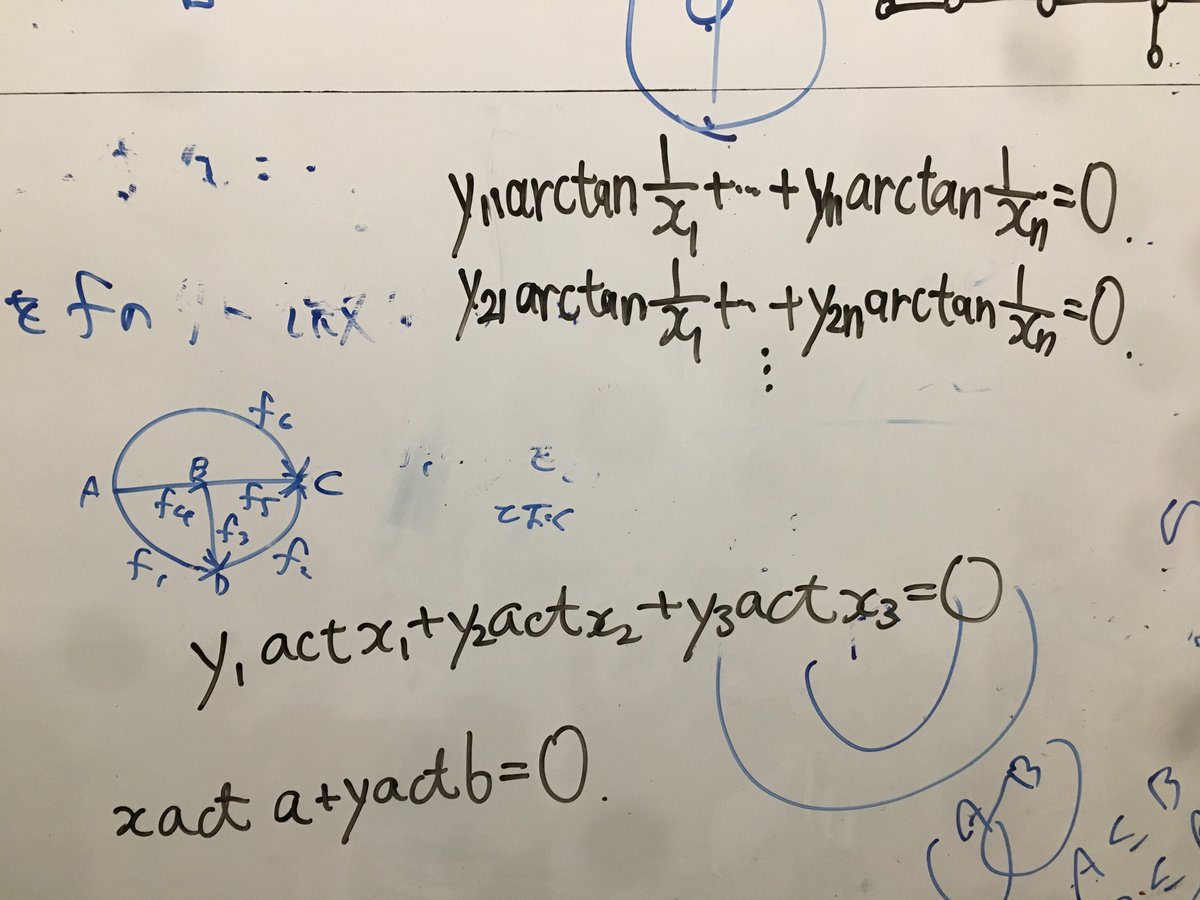 y₁₁ arctan 1/x₁ + ... + yₙ arctan 1/xₙ = 0.
y₂₁ arctan 1/x₁ + ... + y₂ₙ arctan 1/xₙ = 0.
⋮
を fn
f₆
A B C
f₄ f₅
f₃
f₁ D f₂
を
y₁ act x₁ + y₂ act x₂ + y₃ act x₃ = 0
x act a + y act b = 0.
A B
B
A C